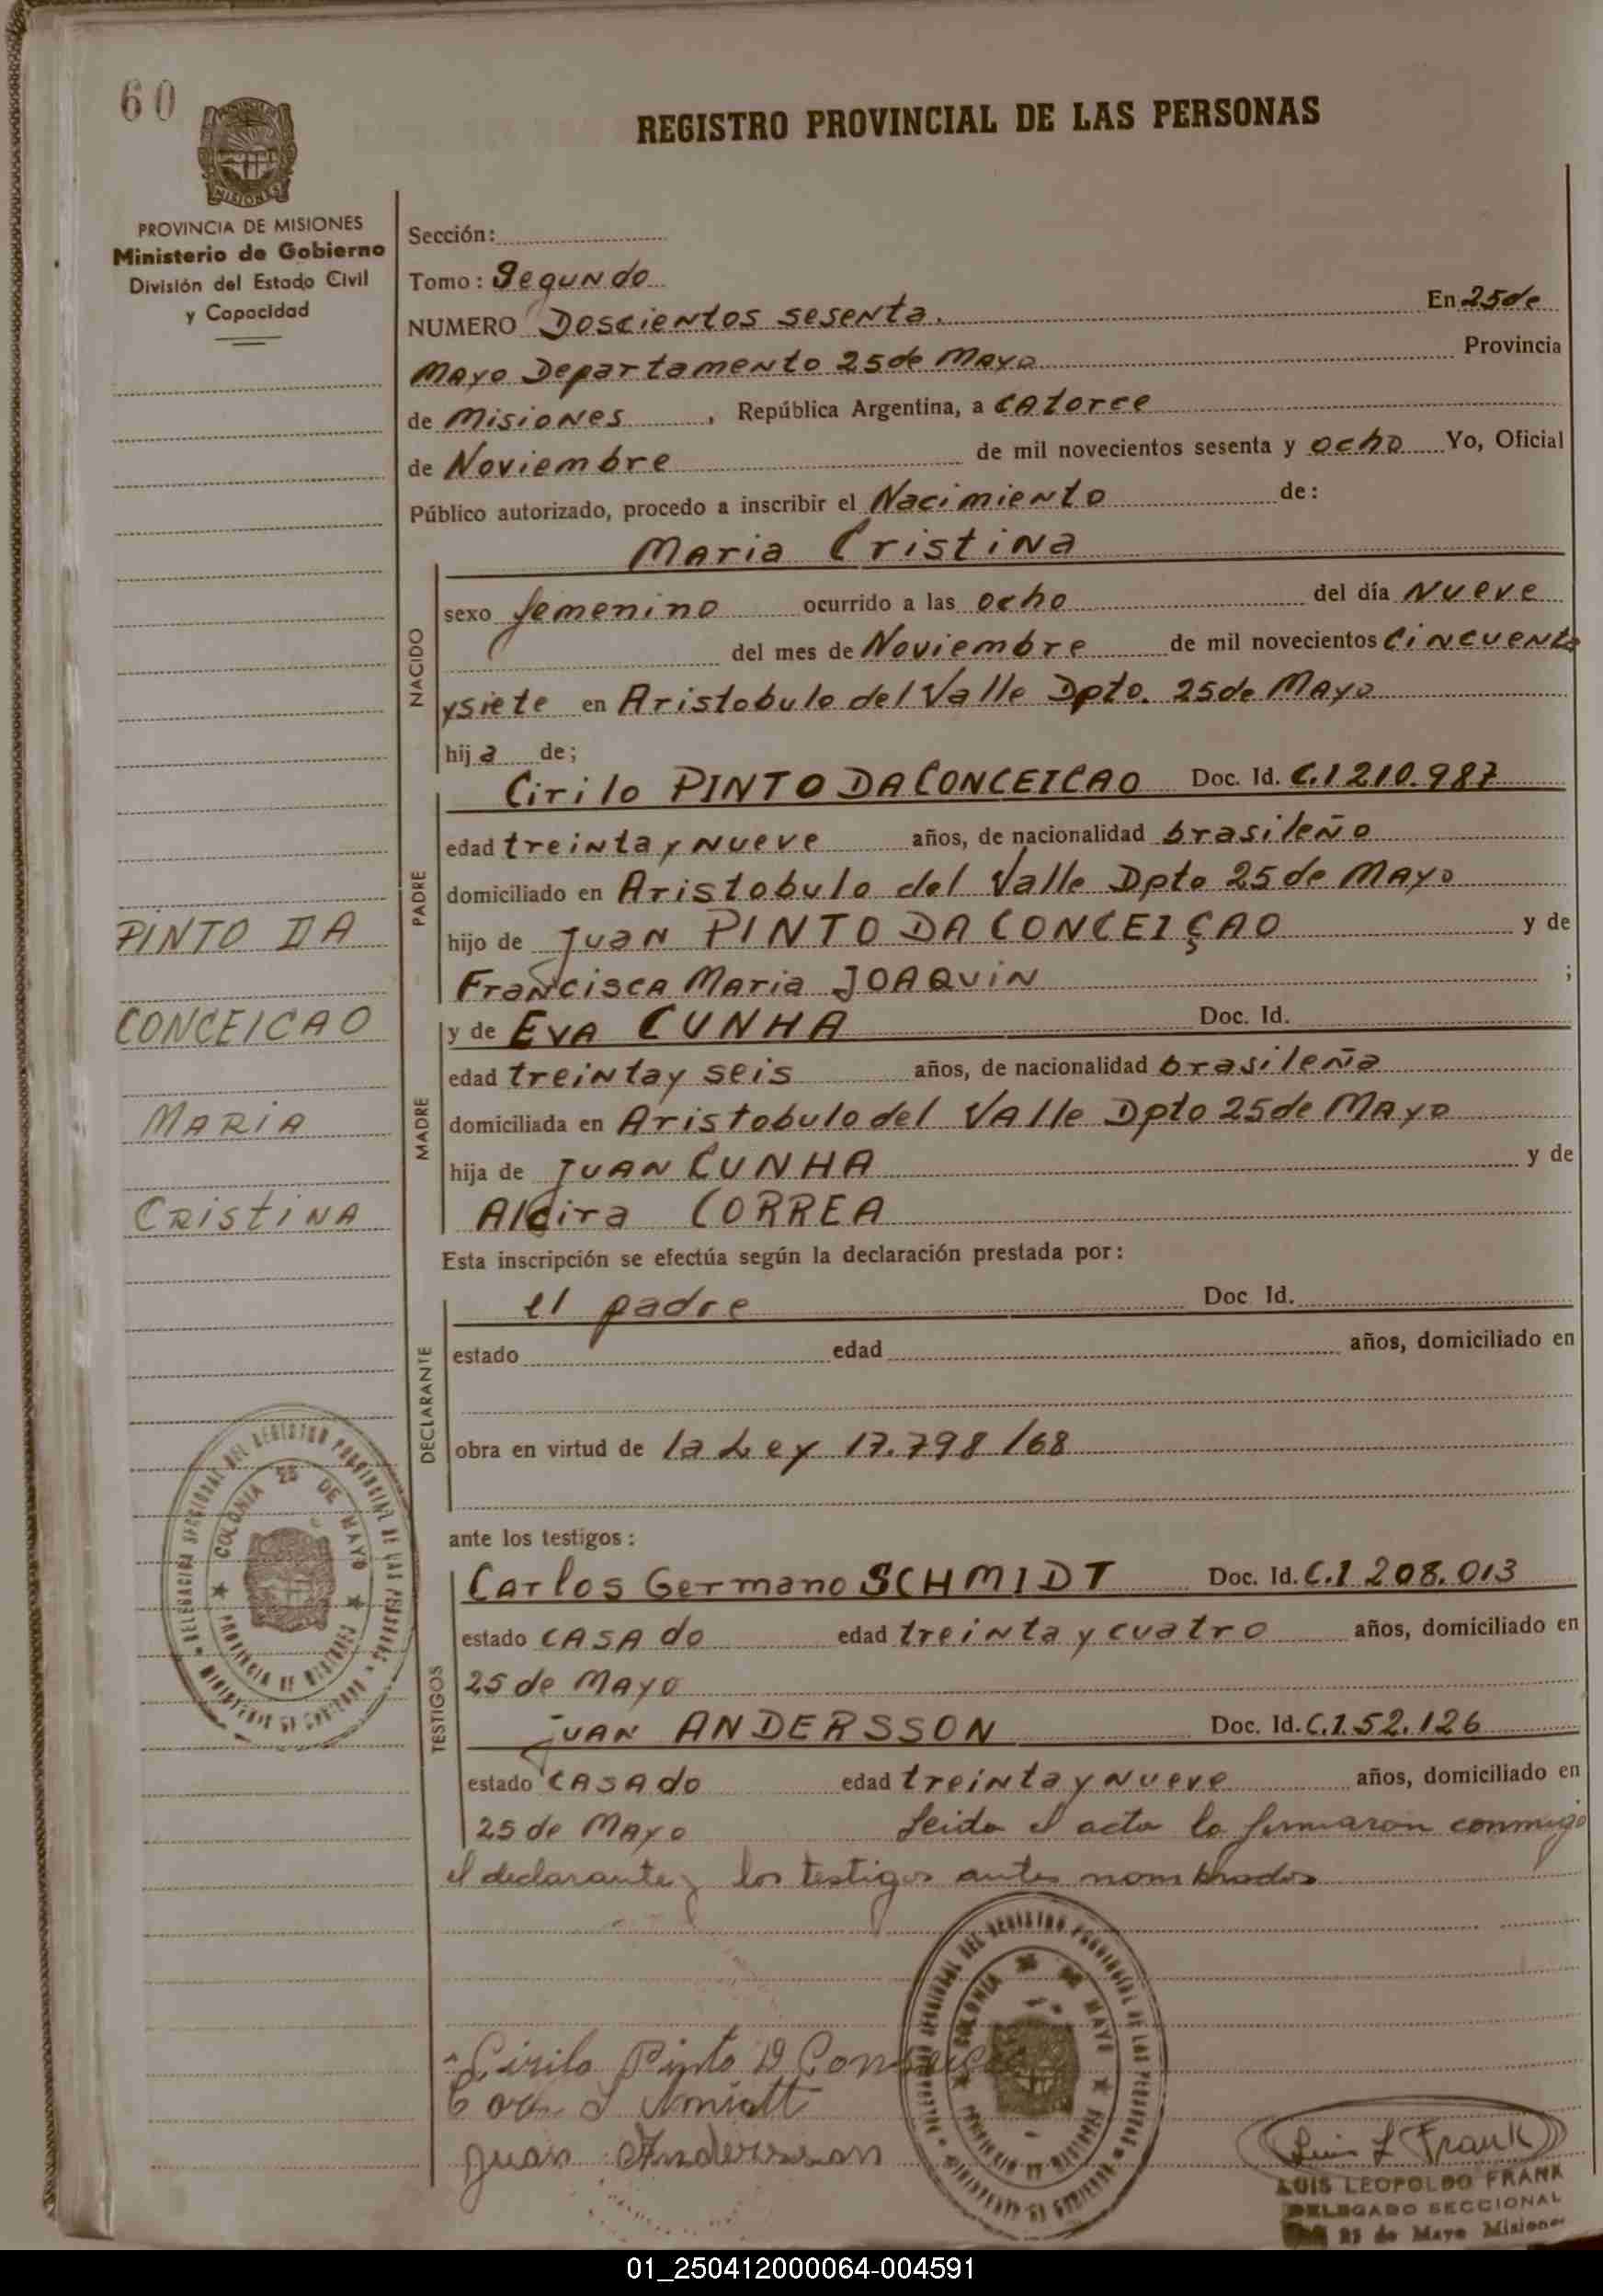 60
REGISTRO PROVINCIAL DE LAS PERSONAS
MISIONES
PROVINCIA DE MISIONES
Ministerio de Gobierno
División del Estado Civil
y Capacidad
Sección:
Tomo: Segundo
NUMERO Doscientos sesenta. En 25 de
Mayo Departamento 25 de Mayo Provincia
de Misiones, República Argentina, a catorce
de Noviembre de mil novecientos sesenta y ocho Yo, Oficial
Público autorizado, procedo a inscribir el Nacimiento de:
Maria Cristina
NACIDO
sexo femenino ocurrido a las ocho del día Nueve
del mes de Noviembre de mil novecientos cincuenta
y siete en Aristobulo del Valle Dpto. 25 de Mayo
hija de;
PADRE
Cirilo PINTO DA CONCEICAO Doc. Id. C.I 210.987
edad treinta y nueve años, de nacionalidad brasileño
domiciliado en Aristobulo del Valle Dpto 25 de Mayo
hijo de Juan PINTO DA CONCEIÇAO y de
Francisca Maria JOAQUIN ;
MADRE
y de Eva CUNHA Doc. Id.
edad treinta y seis años, de nacionalidad brasileña
domiciliada en Aristobulo del Valle Dpto 25 de Mayo
hija de Juan CUNHA y de
Alcira CORREA
PINTO DA
CONCEICAO
MARIA
CRISTINA
Esta inscripción se efectúa según la declaración prestada por:
DECLARANTE
el padre Doc Id.
estado edad años, domiciliado en
obra en virtud de la Ley 17.798/68
ante los testigos:
TESTIGOS
Carlos Germano SCHMIDT Doc. Id. C.I 208.013
estado casado edad treinta y cuatro años, domiciliado en
25 de Mayo
Juan ANDERSSON Doc. Id. C.I. 52.126
estado casado edad treinta y nueve años, domiciliado en
25 de Mayo Leida el acta la firmaron conmigo
el declarante y los testigos antes nombrados
DELEGACION SECCIONAL DEL REGISTRO PROVINCIAL DE LAS PERSONAS
MINISTERIO DE GOBIERNO
COLONIA 25 DE MAYO
PROVINCIA DE MISIONES
DELEGACION SECCIONAL DEL REGISTRO PROVINCIAL DE LAS PERSONAS
MINISTERIO DE GOBIERNO
COLONIA 25 DE MAYO
PROVINCIA DE MISIONES
Cirilo Pinto D
Juan Andersson
Luis L Frank
LUIS LEOPOLDO FRANK
DELEGADO SECCIONAL
25 de Mayo Misiones
01_250412000064-004591